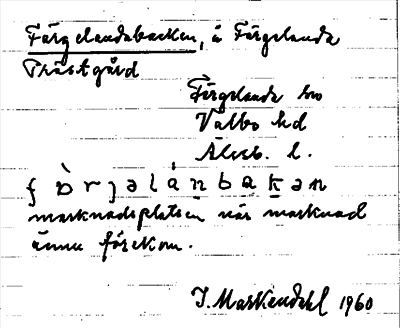 Färgelandabacken, å Färgelanda
Prästgård
Färgelanda sn
Valbo hd
Älvsb. l.
marknadsplatsen när marknad
ännu förekom.
J. Markendahl 1960